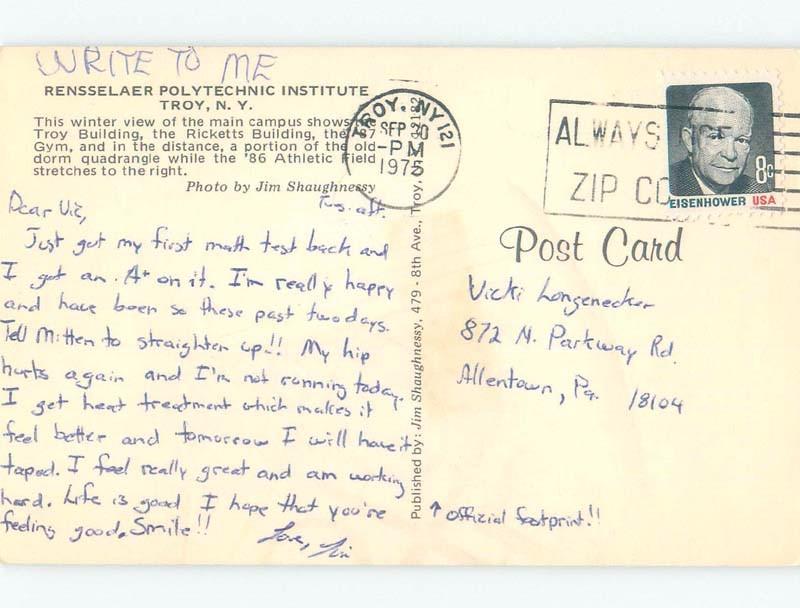 WRITE TO ME
RENSSELAER POLYTECHNIC INSTITUTE
TROY, N. Y.
This winter view of the main campus shows the
Troy Building, the Ricketts Building, the '87
Gym, and in the distance, a portion of the old
dorm quadrangle while the '86 Athletic Field
stretches to the right.
Photo by Jim Shaughnessy
Tus. aft.
Dear Vic,
Just got my first math test back and
I got an A+ on it. I'm really happy
and have been so these past two days.
Tell Mitten to straighten up!! My hip
hurts again and I'm not running today.
I get heat treatment which makes it
feel better and tomorrow I will have it
taped. I feel really great and am working
hard. Life is good I hope that you're
feeling good. Smile!!
Love, Jim
TROY, NY 121
SEP 30
-PM
1975
Published by: Jim Shaughnessy, 479 - 8th Ave., Troy,
ALWAYS
ZIP CO
8c
EISENHOWER USA
Post Card
Vicki Longenecker
872 N. Parkway Rd.
Allentown, Pa. 18104
↑ official footprint!!